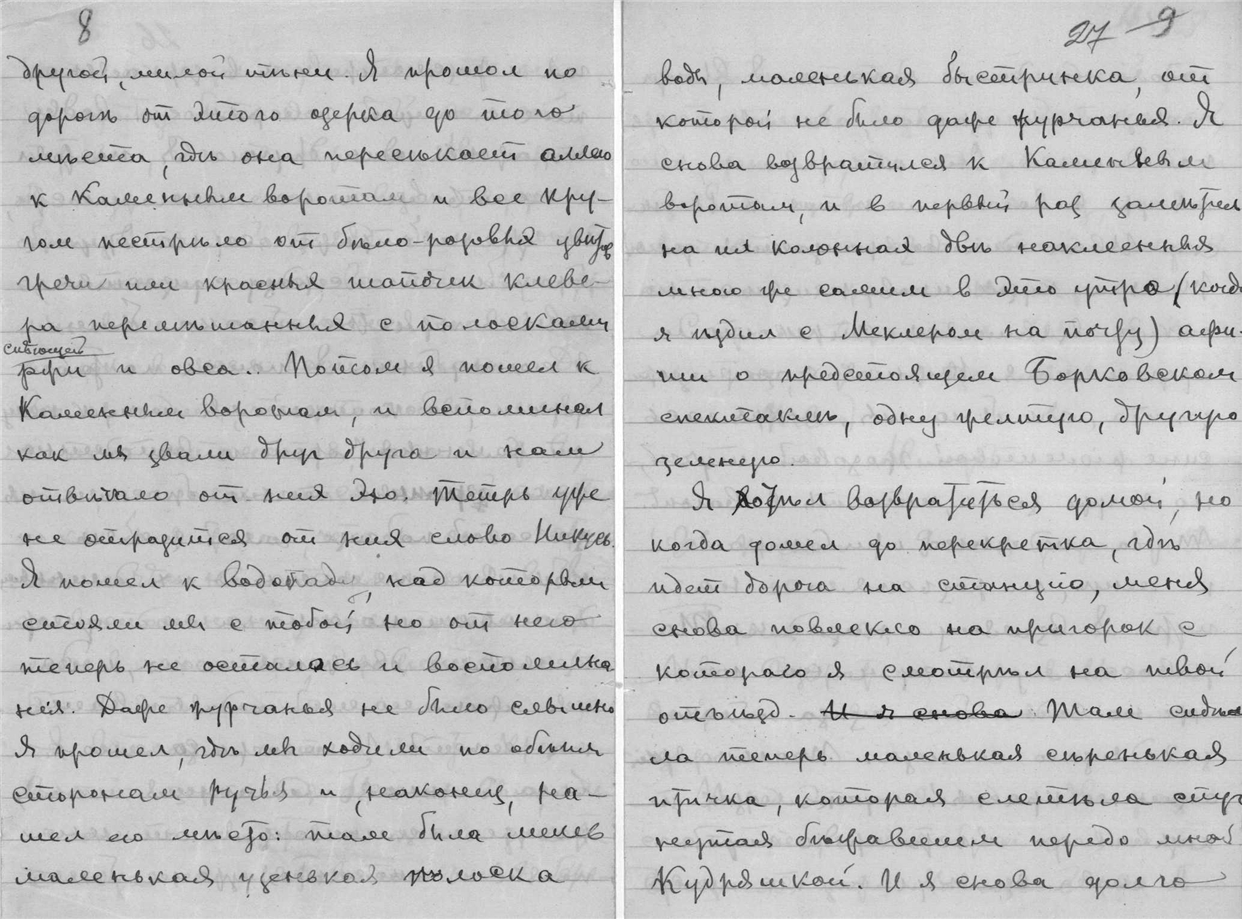 8
другой, милой тѣни. Я прошол по
дорогѣ от этого озерка до того
мѣста, гдѣ она пересѣкает аллею
к Каменным воротам и все кру-
гом пестрѣло от бѣло-розовых цвѣтов
гречи или красных шапочек клеве-
ра перемѣшанных с полосками
ржи и овса.. Потом я пошел к
Каменным воротам, и вспоминал
как мы звали друг друга и нам
отвѣчало от них Эхо. Теперь уже
не отразится от них слово Никусь.
Я пошел к водопаду, над которым
стояли мы с тобой, но от него
теперь не осталось и воспомина
ния. Даже журчанья не было слышно
Я прошел, гдѣ мы ходили по обѣим
сторонам ручья и, наконец, на-
шел его мѣсто: там была лишь
маленькая узенькая полоска
27 9
воды, маленькая быстринка, от
которой не было даже журчанья. Я
снова возвратился к Каменным
воротам, и в первый раз замѣтил
на их колоннах двѣ наклеенных
мною же самим в это утро (когда
я ѣздил с Меклером на почту) афи-
ши о предстоящем Борковском
спектаклѣ, одну желтую, другую
зеленую.
Я хотѣл возвратиться домой, но
когда дошел до перекретка, гдѣ
идет дорога на станцію, меня
снова повлекло на пригорок с
котораго я смотрѣл на твой
отъѣзд. И я снова Там сидѣ
ла теперь маленькая сѣренькая
птичка, которая слетѣла спуг
нутая бѣжавшим передо мной
Кудряшкой. И я снова долго